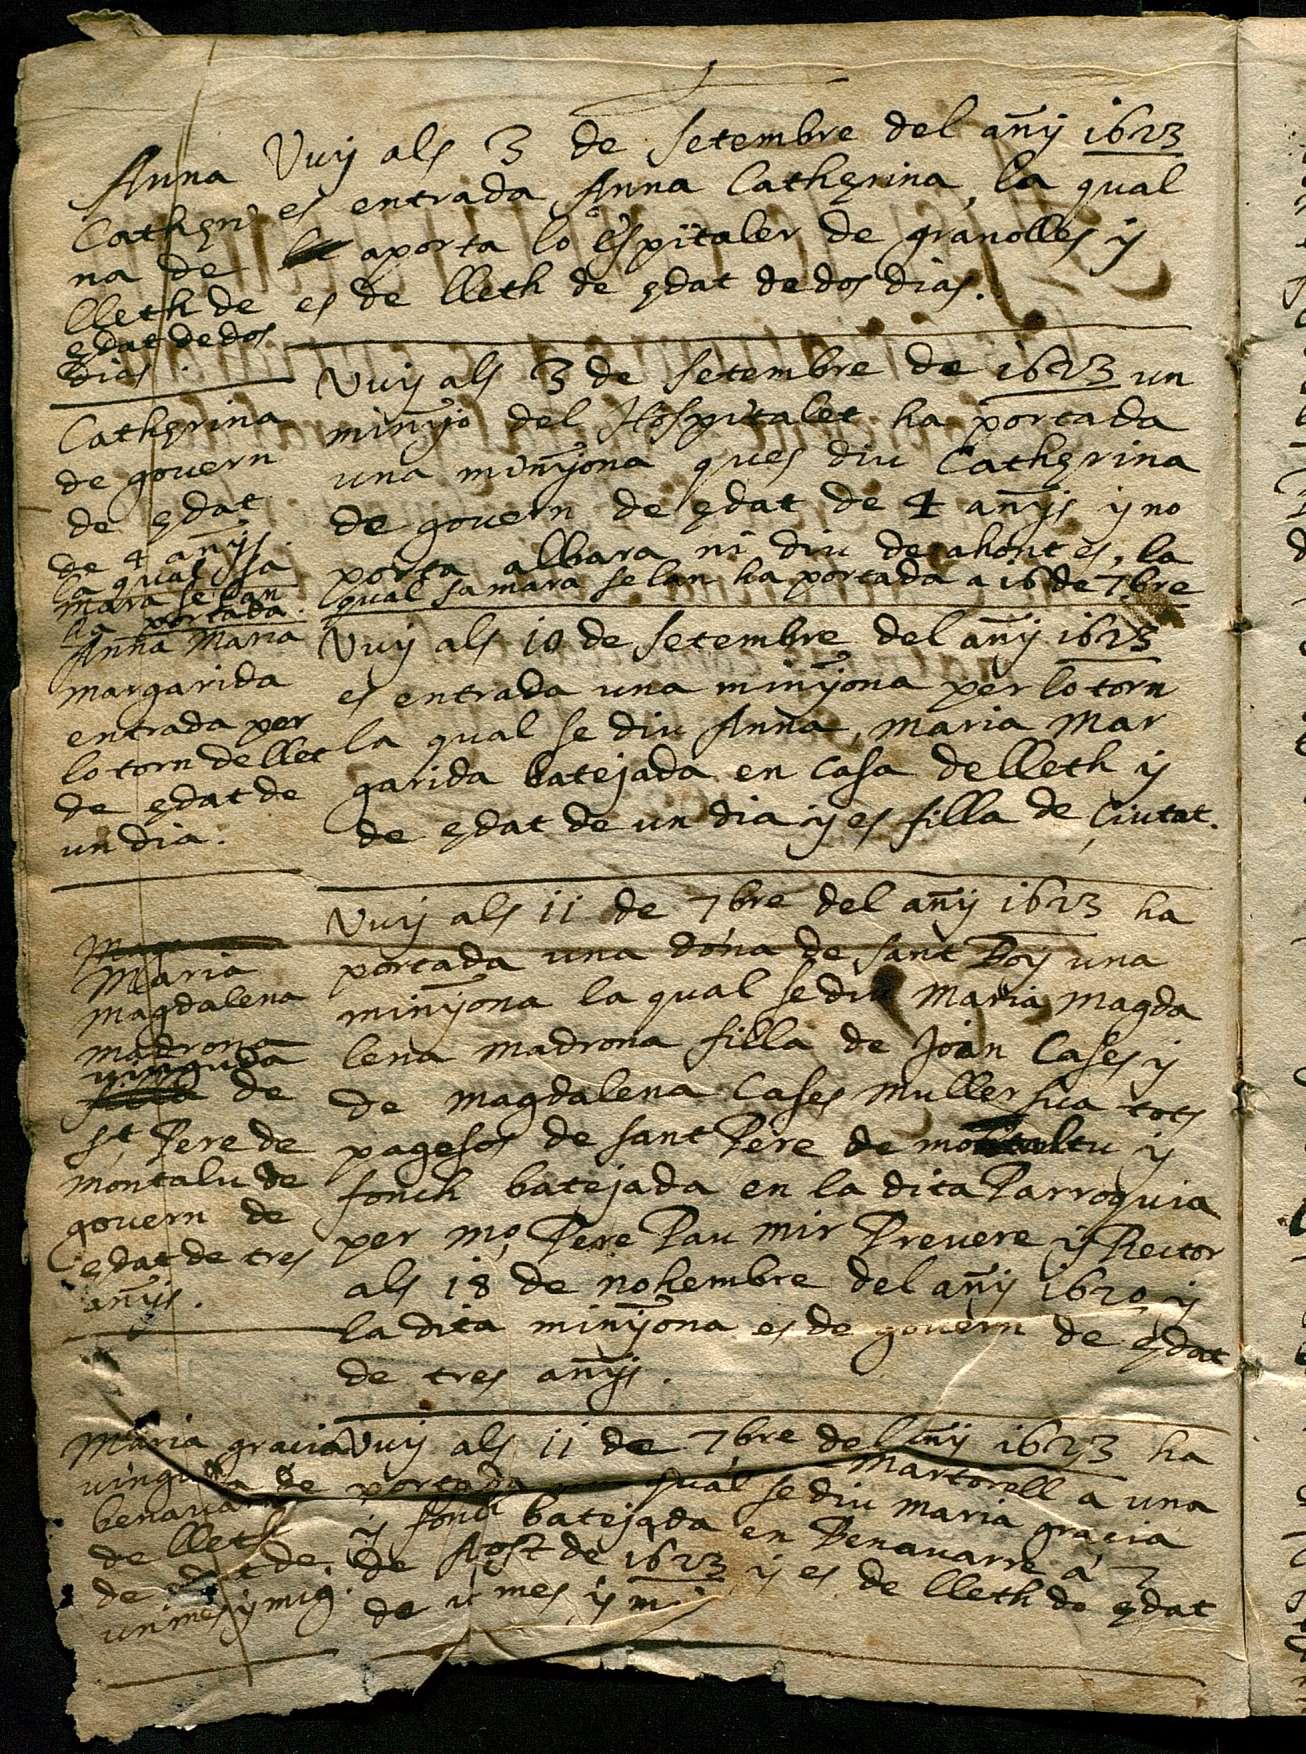 Anna
Catheri
na de
lleth de
edat de dos
dias.
Vuy als 3 de setembre del añy 1623
es entrada Anna Catherina, la qual
aporta lo espitaler de granolles y
es de lleth de edat de dos dias.
Catherina
de govern
de edat
de 4 añys.
la qual sa
mara se lan
ha portada.
Vuy als 3 de setembre de 1623 un
minyo del Hospitalet ha portada
una minyona ques diu Catherina
de govern de edat de 4 añys y no
porta albara ni diu de ahont es, la
qual sa mara se lan ha portada a 16 de 7bre
Anna Maria
margarida
entrada per
lo torn de llet
de edat de
un dia.
Vuy als 10 de setembre del añy 1623
es entrada una minyona per lo torn
la qual se diu Anna, Maria Mar
garida batejada en casa de lleth y
de edat de un dia y es filla de Ciutat.
Maria
magdalena
madrona
vinguda
de
st. Pere de
montalu de
govern de
edat de tres
añys.
Vuy als 11 de 7bre del añy 1623 ha
portada una dona de sant Boy una
minyona la qual se diu Maria Magda
lena madrona filla de Joan Cases y
de magdalena Cases muller sua tots
pagesos de sant Pere de y
fonch batejada en la dita Parroquia
per mo, Pere Pau mir Prevere y Rector
als 18 de nohembre del añy 1620 y
la dita minyona es de govern de edat
de tres añys.
Maria gracia
vinguda de
benavarre
de lleth
de edat de
un mes y mig.
Vuy als 11 de 7bre del añy 1623 ha
portada Martorell a una
qual se diu Maria gracia
y fonch batejada en Benavarre a 7
de Agost de 1623 y es de lleth de edat
de u mes y mig